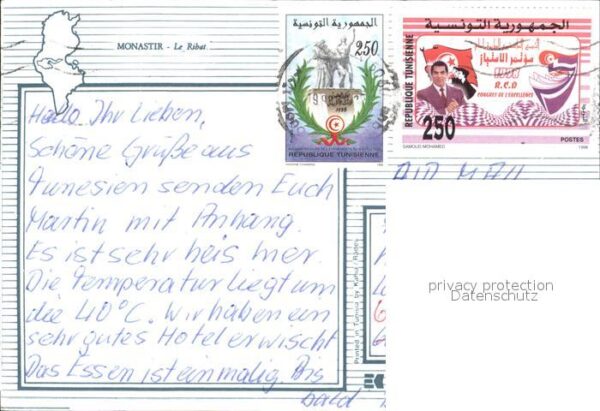 MONASTIR - Le Ribat
الجمهورية التونسية
250
REPUBLIQUE TUNISIENNE
الجمهورية التونسية
REPUBLIQUE TUNISIENNE
مؤتمر الامتياز
R.C.D
CONGRES DE L'EXCELLENCE
250
POSTES
AIR MAIL
Hallo Ihr Lieben,
Schöne Grüße aus
Tunesien senden Euch
Martin mit Anhang.
Es ist sehr heis hier.
Die Temperatur liegt um
die 40°C. Wir haben ein
sehr gutes Hotel erwischt
Das Essen ist einmalig. Bis
bald
privacy protection
Datenschutz